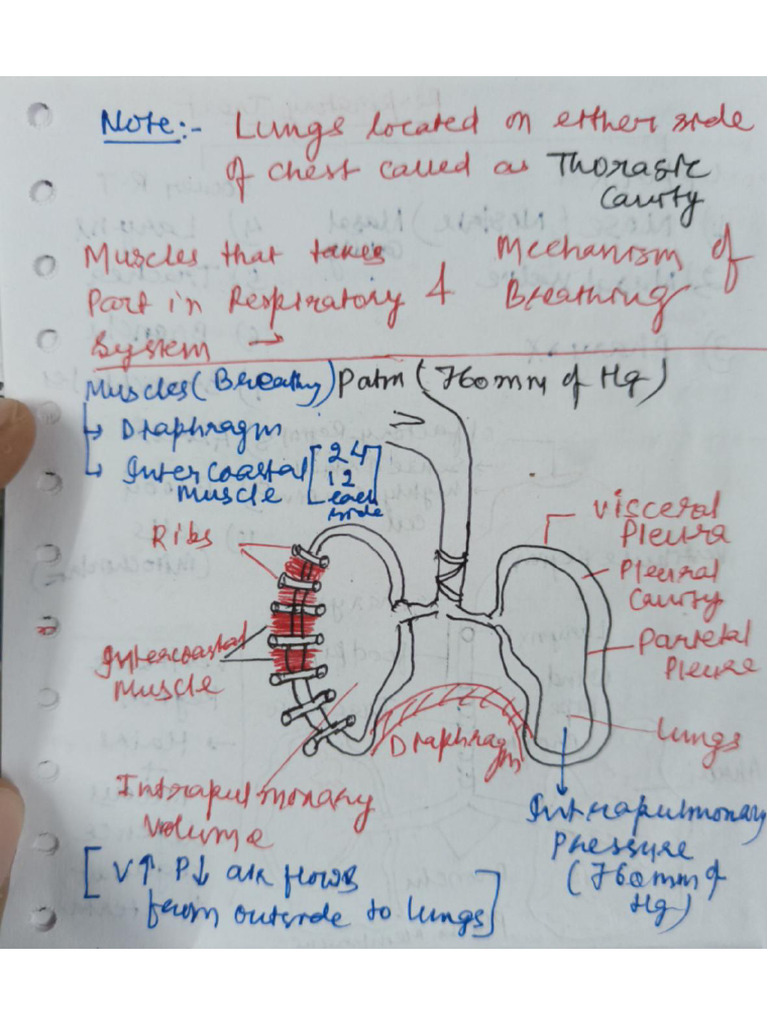 Note:- Lungs located on either side
of chest called as Thorasic
Cavity
Muscles that takes
Part in Respiratory &
System →
Mechanism of
Breathing
Muscles (Breathy) Patm (760mm of Hg)
↳ Diaphragm
↳ Intercoastal
muscle
[24
12
each
side]
Ribs
Visceral
Pleura
Pleural
Cavity
Parietal
Pleure
Intercoastal
Muscle
Lungs
Diaphragm
Intrapulmonary
Volume
Intrapulmonary
Pressure
(760mm of
Hg)
[V↑ P↓ air flows
from outside to lungs]